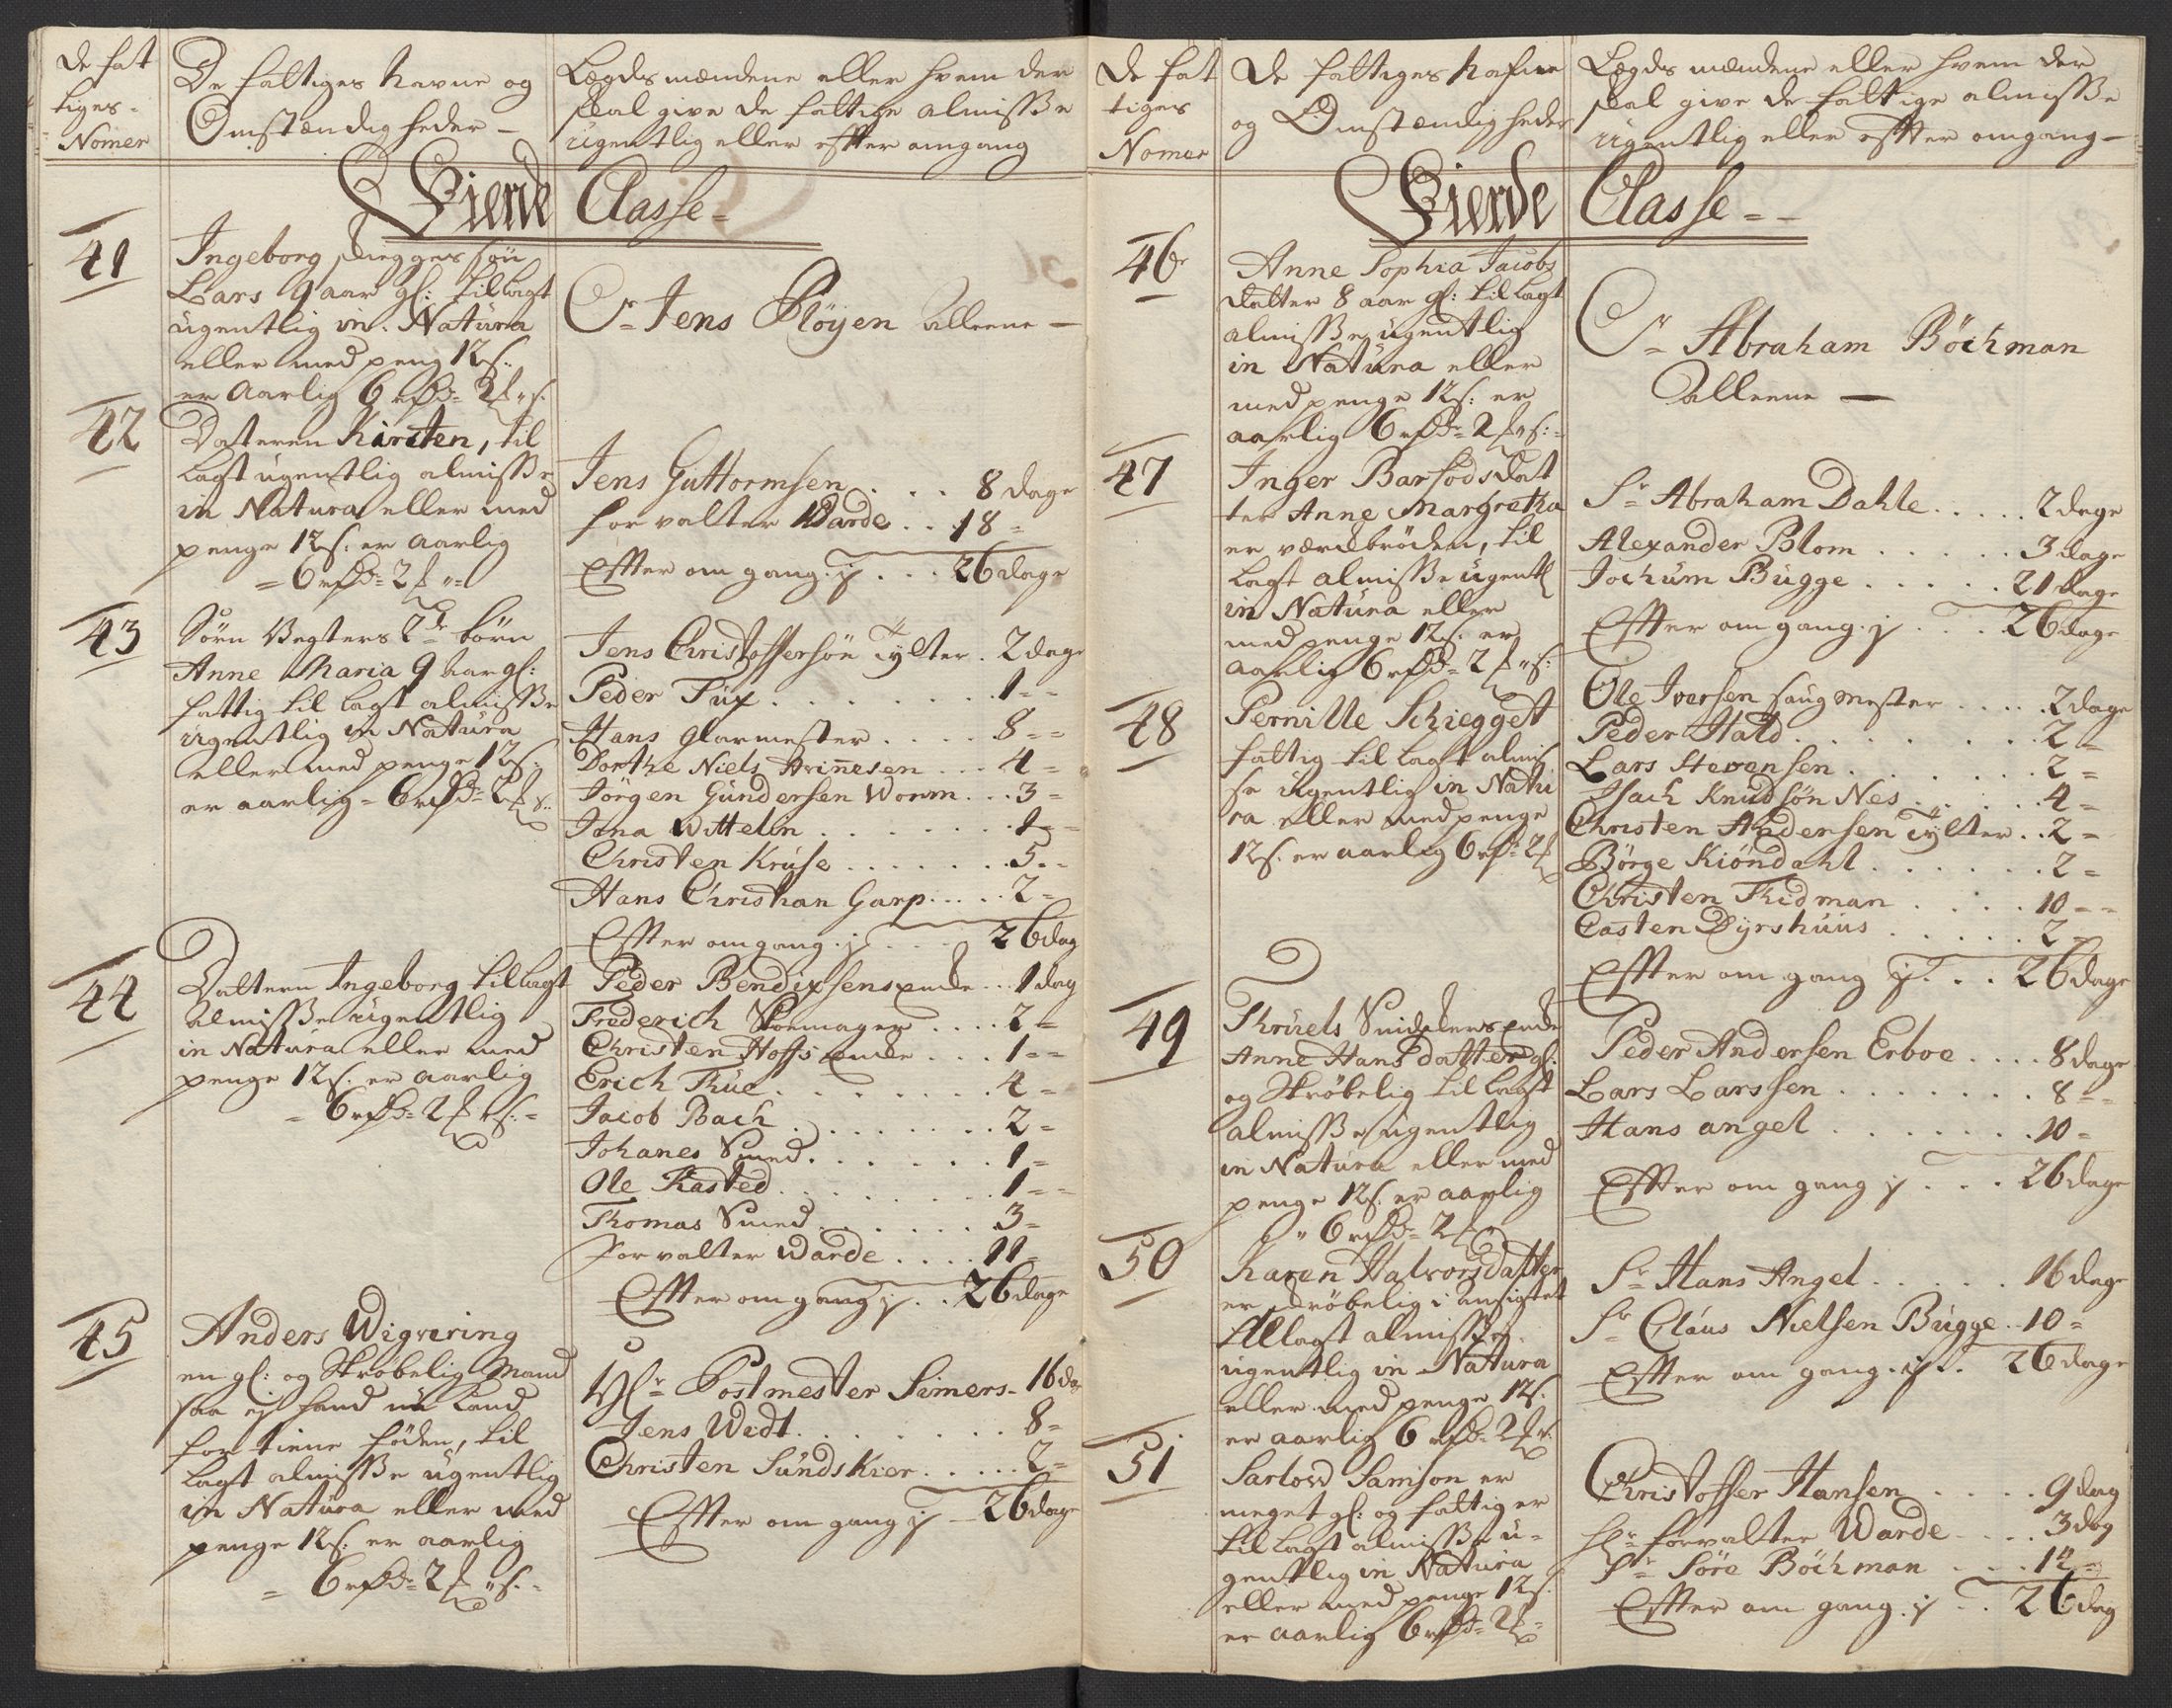 De fat
tiges
Nomer
De fattiges Navne og
Omstændigheder
Lægdsmændene eller hvem der
skal give de fattige almisse
ugentlig eller effter omgang
Fierde Classe
41
Ingeborg søn
Lars 9 aar gl: tillagt
ugentlig in Natura
eller med peng 12 s:
er Aarlig 6 rd 2
Sr Jens Pløyen alleene
42
Datteren Kirsten, til
lagt ugentlig almisse
in Natura eller med
penge 12 s: er aarlig
6 rd 2
Jens Guttormsen . . . 8 dage
forvalter Warde . . 18
Effter omgang . . . 26 dage
43
Sørn Vegters 2de børn
Anne Maria 9 aar gl:
fattig tillagt almisse
ugentlig in Natura
eller med penge 12 s:
er aarlig 6 rd 2
Jens Christoffersøn Tylter . 2 dage
Peder Tux . . . . . . . 1
Hans glarmester . . . . 8
Dorthe Niels Arinnesen . . . 4
Jørgen Gundersen Worm . . . 3
Jona Wittelin . . . . . . . 1
Christen Kruse . . . . . . 5
Hans Christian Garp . . . . . 2
Effter omgang . . . 26 dag
44
Dattern Ingeborg tillagt
almisse ugentlig
in Natura eller med
penge 12 s: er aarlig
6 rd 2
Peder Bendixsens enke . . . 1 dag
Frederich Skomager . . . . 2
Christen Hoffs enke . . . 1
Erich Thue . . . . . . . 4
Jacob Bach . . . . . . . 2
Johanes Smed . . . . . . 1
Ole Kasted . . . . . . . 1
Thomas Smed . . . . . . 3
forvalter Warde . . . . 11
Effter omgang . . 26 dage
45
Anders Wigvering
en gl: og skrøbelig Mand
saa ej hand nu kand
fortiene føden, til
lagt almisse ugentlig
in Natura eller med
penge 12 s: er aarlig
6 rd 2
Hr Postmester Simers 16 da
Jens Widt . . . . . . . 8
Christen Sundskier . . . . . 2
Effter omgang 26 dage
De fat
tiges
Nomer
De fattiges Nafne
og Omstændigheder
Lægds mændene eller hvem der
skal give de fattige almisse
ugentlig eller effter omgang
Fierde Classe
46
Anne Sophia Jacobs
datter 8 aar gl: tillagt
almisse ugentlig
in Natura eller
med penge 12 s: er
aarlig 6 rd 2
Sr Abraham Böckman
alleene
47
Inger Barfodsdat
ter Anne Margretha
er værkbröden, til
lagt almisse ugentl
in Natura eller
med penge 12 s: er
aarlig 6 rd 2
Sr Abraham Dahle . . . . . 2 dage
Alexander Blom . . . . . . 3 dage
Jochum Bugge . . . . . 21 dage
Effter omgang . . . 26 dage
48
Pernille Schiegget
fattig tillagt almis
se ugentlig in Natu
ra eller med penge
12 s: er aarlig 6 rd 2
Ole Iversen saugmester . . . . 2 dage
Peder Hald . . . . . . . . 2
Lars Stevensen . . . . . . . 2
Isach Knudsøn Nes . . . . . 4
Christen Andersen Tylter . . 2
Børge Kiöndahl . . . . . . 2
Christen Thidman . . . . 10
Casten Dyrshuus . . . . . 2
Effter omgang . . . 26 dage
49
Thruels Snidkers enke
Anne Hansdatter gl:
og skrøbelig tillagt
almisse ugentlig
in Natura eller med
penge 12 s: er aarlig
6 rd 2
Peder Andersen Erboe . . . . 8 dage
Lars Larssen . . . . . . . 8
Hans angel . . . . . . . 10
Effter om gang . . . 26 dage
50
Karen Halvorsdatter
er skrøbelig i ansigtet
tillagt almisse
ugentlig in Natura
eller med penge 12 s:
er aarlig 6 rd 2
Sr Hans Angel . . . . . 16 dage
Sr Claus Nielsen Bugge . . 10
Effter om gang . . . 26 dage
51
Samson er
meget gl: og fattig er
tillagt almisse u-
gentlig in Natura
eller med penge 12 s:
er aarlig 6 rd 2
Christoffer Hansen . . . . 9 dag
Hr forvalter Warde . . . . 3 dag
Sr Söre Böckman . . . 14
Effter om gang . . . 26 dag